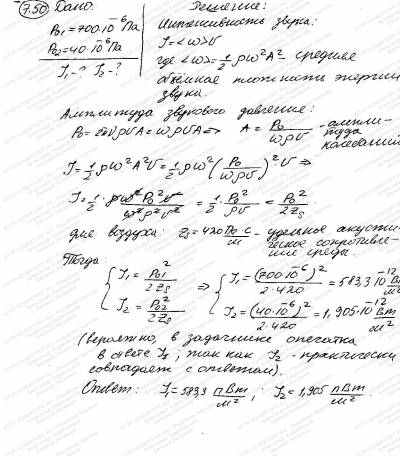 7.50 Дано:
P₀₁ = 700·10⁻⁶ Па
P₀₂ = 40·10⁻⁶ Па
J₁ - ? J₂ - ?
Решение:
Интенсивность звука:
J = <w>v
где <w> = 1/2 ρω²A² - средняя
объёмная плотность энергии
звука.
Амплитуда звукового давления:
P₀ = 2πνρvA = ωρvA => A = P₀/(ωρv) - амплитуда колебаний
J = 1/2 ρω²A²v = 1/2 ρω² (P₀/(ωρv))² v =>
J = 1/2 · ρω²P₀²v/(ω²ρ²v²) = 1/2 · P₀²/(ρv) = P₀²/(2Zₛ)
для воздуха: Zₛ = 420 Па·с/м - удельное акустическое сопротивление среды.
Тогда:
{ J₁ = P₀₁²/(2Zₛ) => { J₁ = (700·10⁻⁶)²/(2·420) = 583,3·10⁻¹² Вт/м²
J₂ = P₀₂²/(2Zₛ) J₂ = (40·10⁻⁶)²/(2·420) = 1,905·10⁻¹² Вт/м²
(вероятно, в задачнике опечатка
в ответе J₁, так как J₂ - практически
совпадает с ответом).
Ответ: J₁ = 583,3 пВт/м²; J₂ = 1,905 пВт/м².